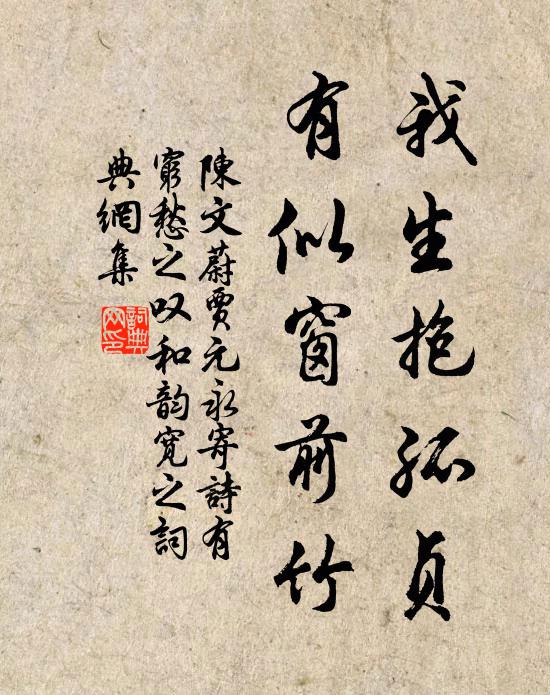 我生抱孤貞
有似窗前竹
陳文蔚賈元永寄詩有
窮愁之叹和韵寬之詞
典網集
詞典
网印